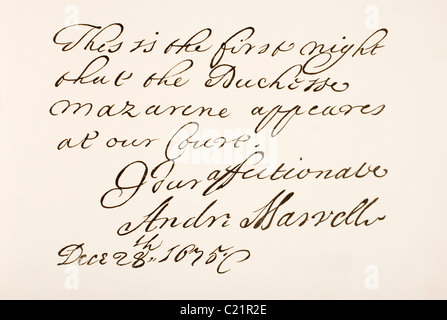 This is the first night
that the Duchesse
mazarene appeares
at our Court.
Your affectionate
Andr: Marvell
Dece 28th, 1675
alamy
Image ID: C21R2E
www.alamy.com